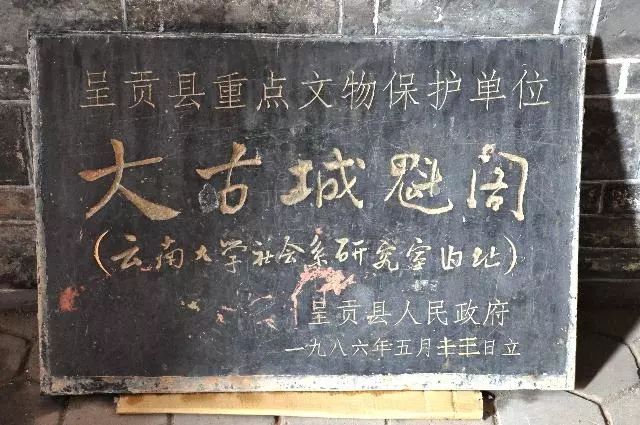 呈贡县重点文物保护单位
大古城魁阁
(云南大学社会系研究室旧址)
呈贡县人民政府
一九八六年五月日立